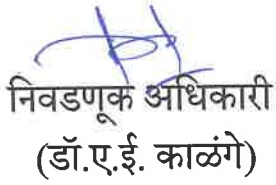 निवडणूक अधिकारी
(डॉ.ए.ई. काळंगे)